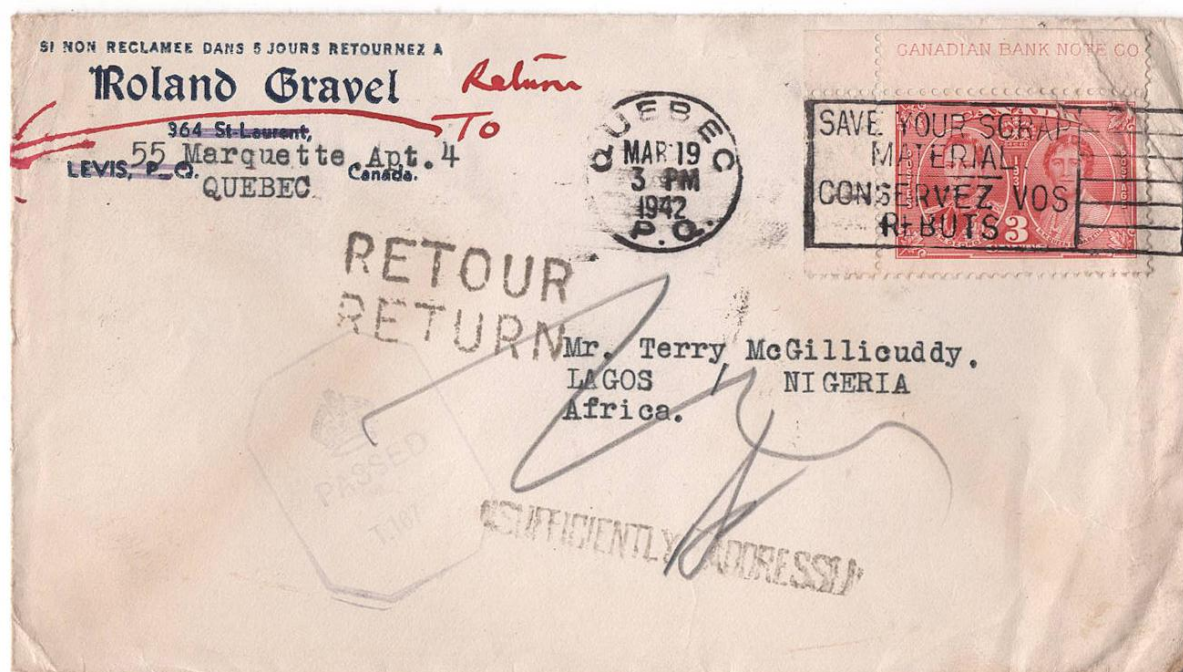 SI NON RECLAMEE DANS 5 JOURS RETOURNEZ A
Roland Gravel
Return
To
364 St-Laurent,
55 Marquette Apt. 4
LEVIS, P. Q. Canada.
QUEBEC
QUEBEC
MAR 19
3 PM
1942
P.Q.
CANADIAN BANK NOTE CO
SAVE YOUR SCRAP
MATERIAL
CONSERVEZ VOS
REBUTS
3
RETOUR
RETURN
Mr. Terry McGillicuddy.
LAGOS / NIGERIA
Africa.
PASSED
T.167
NSUFFICIENTLY ADDRESSED